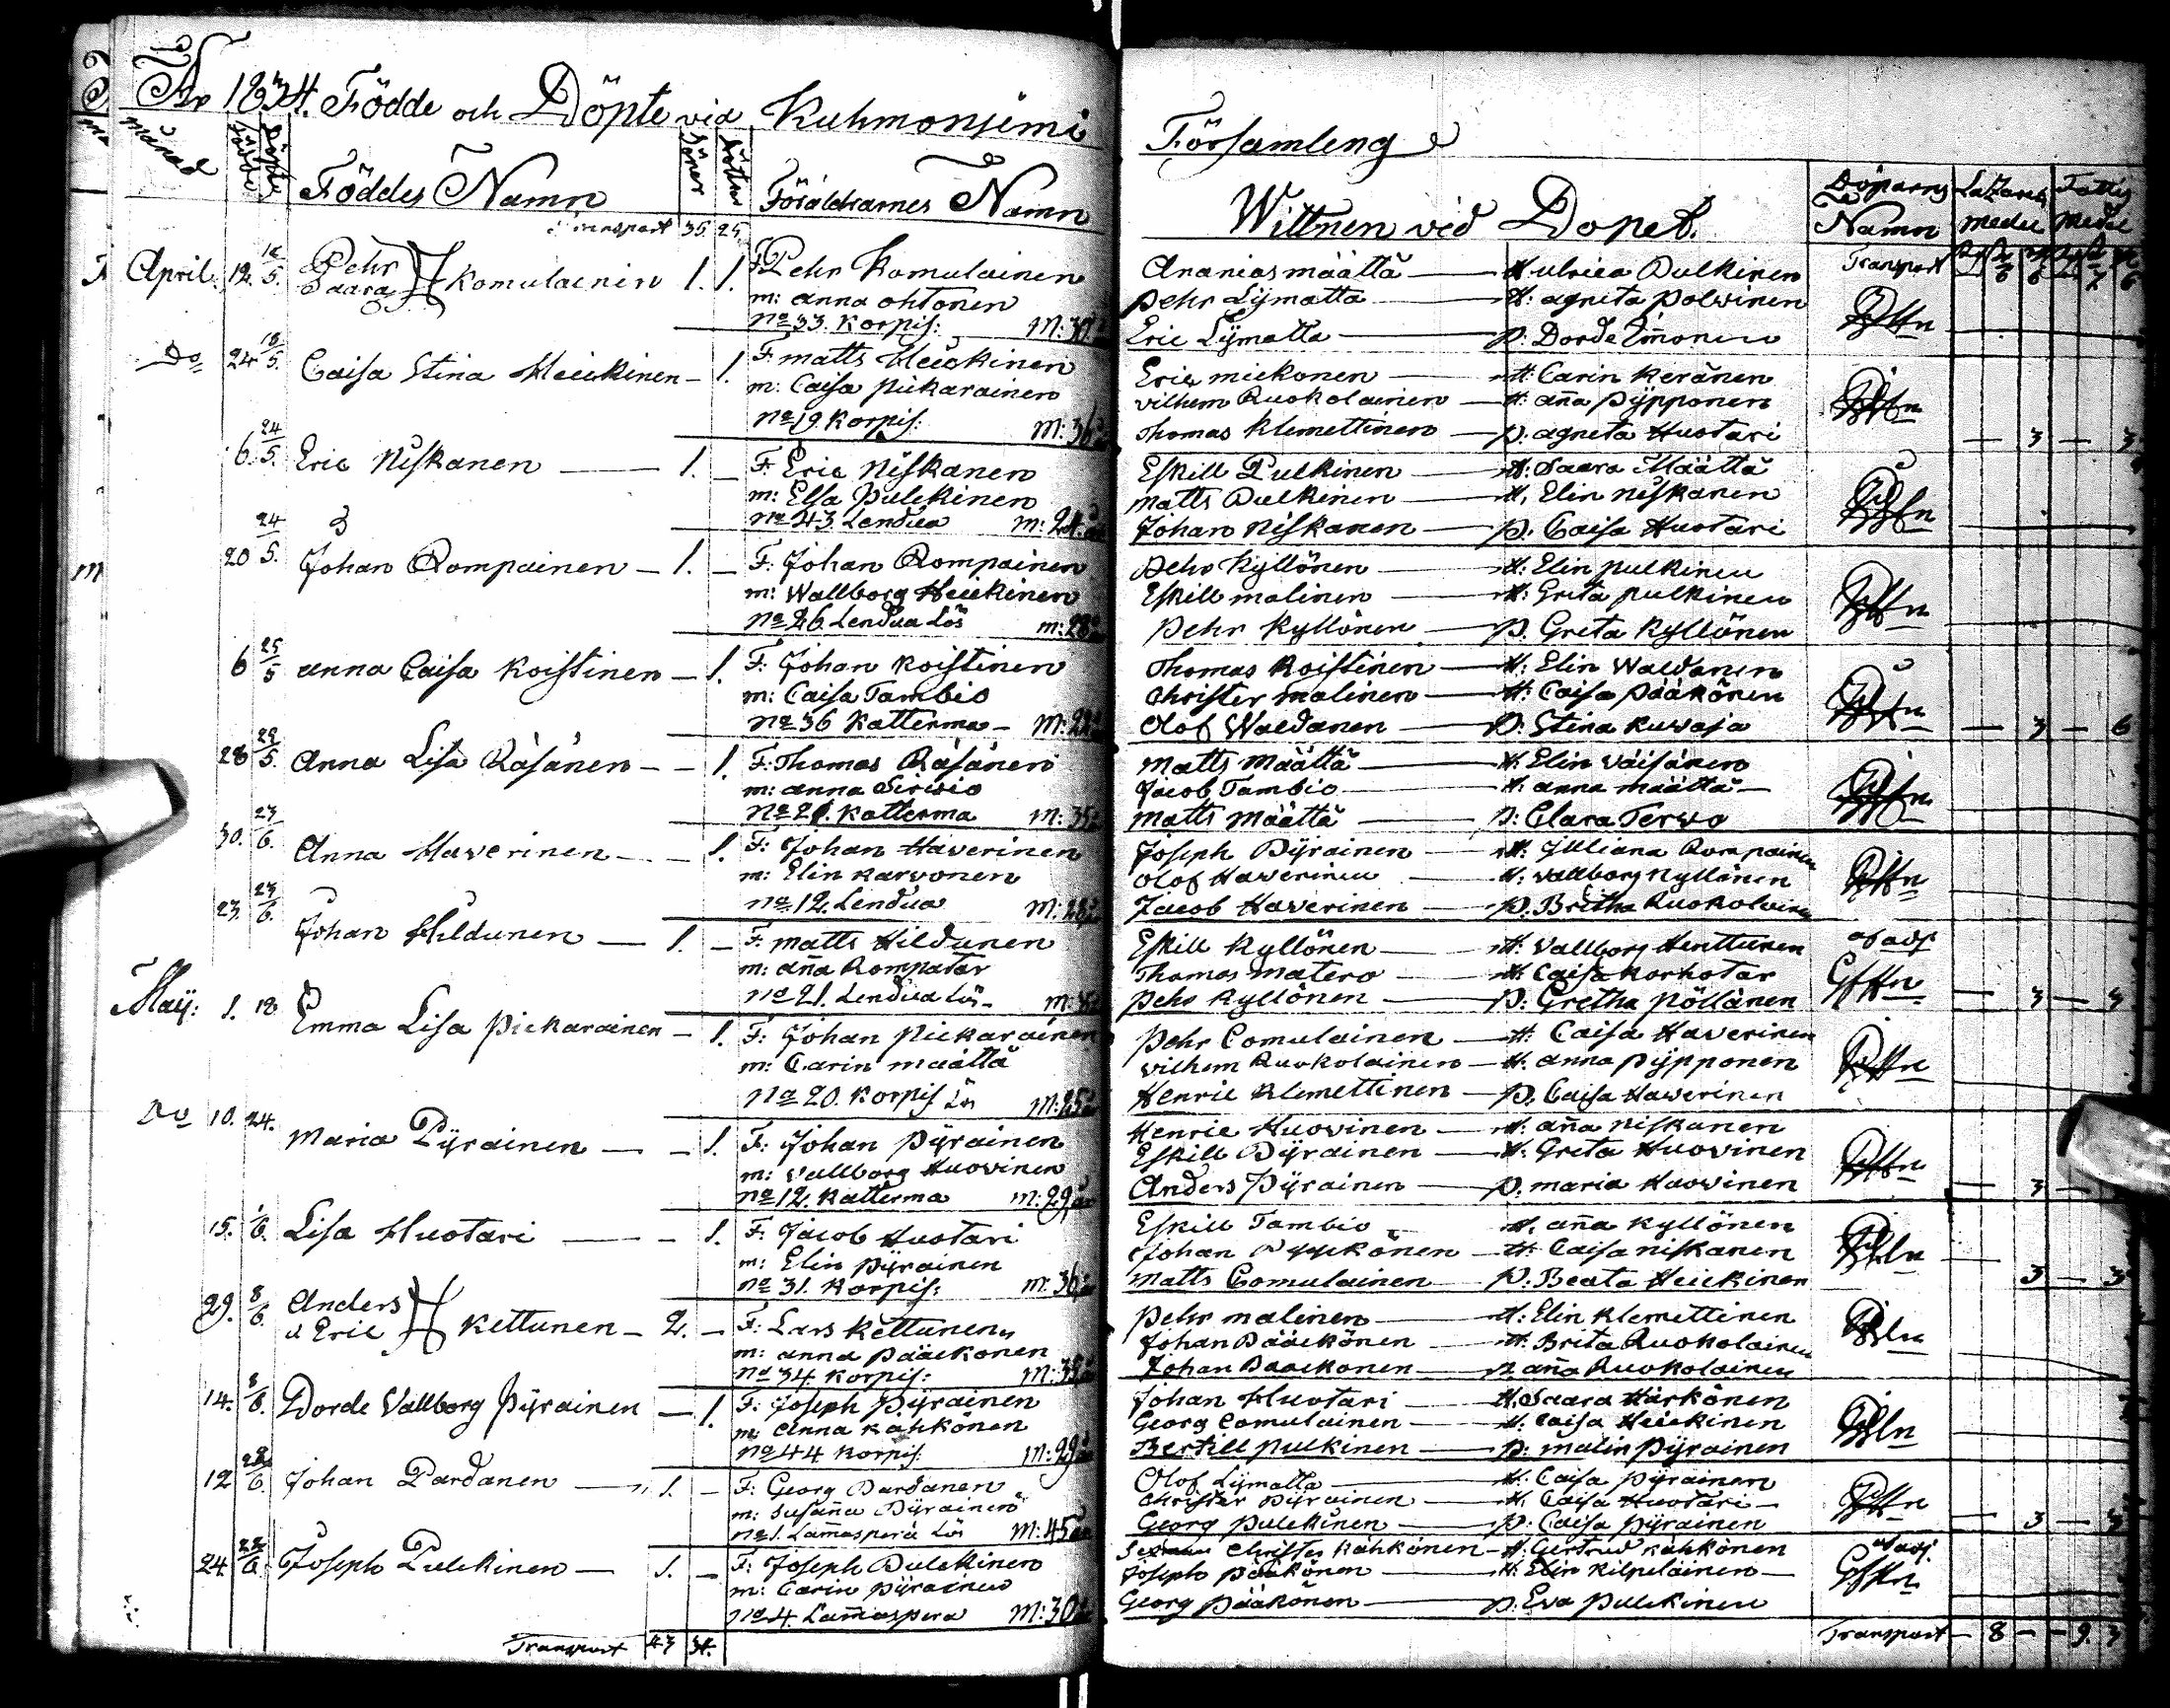 År 1834. Födde och Döpte vid Kuhmonjemi
månad
födde
Döpte
Föddes Namn
Söner
Döttrar
Föräldrarnes Namn
Transport 35 25
April. 12. 18/5. Pehr
Saara } Komulainin 1. 1.
F. Pehr Komulainen
m: anna ohtonen
No 33. Korpis:
Do 24 18/5. Caisa Stina Heickinen - 1.
F. matts Heickinen
m: Caisa pickarainen
No 19. Korpis: M: 36
6. 24/5. Eric Niskanen 1. -
F. Eric Niskanen
m: Elsa Pulckinen
No 43. Lendua m: 24.
20 24/5. Johan Rompainen - 1. -
F: Johan Rompainen
m: Wallborg Heickinen
No 26. Lendua Lös m: 28
6 25/5 anna Caisa Koistinen - 1.
F: Johan Koistinen
m: Caisa Tambio
No 36 Katterma - M: 28
28 29/5. Anna Lisa Räsänen - - 1.
F: Thomas Räsänen
m: anna Sirwio
No 20. Katterma M: 35
30. 23/6. Anna Haverinen - - 1.
F: Johan Haverinen
m: Elin Karvonen
No 12. Lendua M: 28
23. 23/6. Johan Hildunen - 1. -
F: matts Hildunen
m: aña Rompatar
No 21. Lendua Lös
Maij: 1. 18 Emma Lisa pickarainen - 1.
F: Johan Pickarainen
m: Carin määttä
No 20. Korpis Lös M: 25
Do 10. 24. Maria Pijrainen - - 1.
F: Johan Pijrainen
m: Vallborg Huovinen
No 12. Katterma m: 29
15. 1/6. Lisa Huotari - - 1.
F: Jacob Huotari
m: Elin pijrainen
No 31. Korpis: m: 36
29. 8/6. Anders
& Eric } Kettunen - 2. -
F: Lars Kettunen
m: anna Pääckönen
No 34. Korpis: M: 35
14. 8/6. Dorde Vallborg Pijrainen - 1.
F: Joseph Pijrainen
m: Anna Kähkönen
No 44 Korpis: m: 29
12 22/6. Johan Pardanen - 1. -
F: Georg Pardanen
m: Susaña Pijrainen
No 1. Lam̃aspera Lös M: 45
24. 22/6. Joseph Pulckinen - 1. -
F: Joseph Pulckinen
m: Carin Pijrainen
No 4. Lam̃aspera M: 30
Transport 43 34.
Församleng
Wittnen vid Dopet.
Döparns Namn
Lazarets medel
Fattig medel
Transport
Ananias määttä - H ulrica Pulkinen
pehr Lijmatta - H: agneta polvinen
Eric Lijmatta - p: Dorde Im̃onen
Eric mickonen - H: Carin Keränen
vilhem Ruokolainen - H: aña pijpponen
Thomas Klemettinen - p. agneta Huotari - 3 - 3
Eskill Pulkinen - H: Saara Määttä
matts Pulkinen - H, Elin niskanen
Johan Niskanen - p. Caisa Huotari
Pehr Kyllönen - H: Elin pulkinen
Eskill malinen - H: Greta pulkinen
Pehr Kyllönen - p. Greta Kyllönen
Thomas Koistinen - H: Elin Waldanen
Christer malinen - H: Caisa pääkönen
Olof Waldanen - p: Stina Kuvaja - 3 - 6
Matts Määttä - H: Elin väisänen
Jacob Tambio - H: anna määttä
matts Määttä - p: Clara Tervo
Joseph Pijrainen - H: Juliana Rompainen
Olof Haverinen - H: vallborg Kyllönen
Jacob Haverinen - p. Britha Ruokolainen
Eskill Kyllönen - H: Vallborg Henttunen
Thomas matero - H: Caisa Korhotar
pehr Kyllönen - p: Gretha Pöllänen - 3 - 3
Pehr Comulainen - H: Caisa Haverinen
vilhem Ruokolainen - H: anna pijpponen
Henric Klemettinen - p. Caisa Haverinen
Henric Huovinen - H. aña niskanen
Eskill Pijrainen - H: Greta Huovinen
Anders Pijrainen - p: maria Huovinen - 3 -
Eskill Tambio - H. aña Kyllönen
Johan Pyykönen - H. Caisa niskanen
Matts Comulainen - p: Beata Heickinen 3 - 3
Pehr malinen - H: Elin Klemettinen
Johan Pääckönen - H. Brita Ruokolainen
Johan Pääckonen - p aña Ruokolainen
Johan Huotari - H. Saara Härkönen
Georg Comulainen - H: Caisa Heickinen
Bertill pulkinen - p: malin Pijrainen
Olof Lijmatta - H: Caisa Pijrainen
Christer Pijrainen - H. Caisa Huotari
Georg Pulckinen - p: Caisa Pijrainen - 3 - 3
Christer Kähkönen - H: Gertrud Kähkönen
Joseph Pääkönen - H: Elin Kilpeläinen
Georg Pääkönen - p: Eva Pulckinen
Transport - 8 - - 9. 3